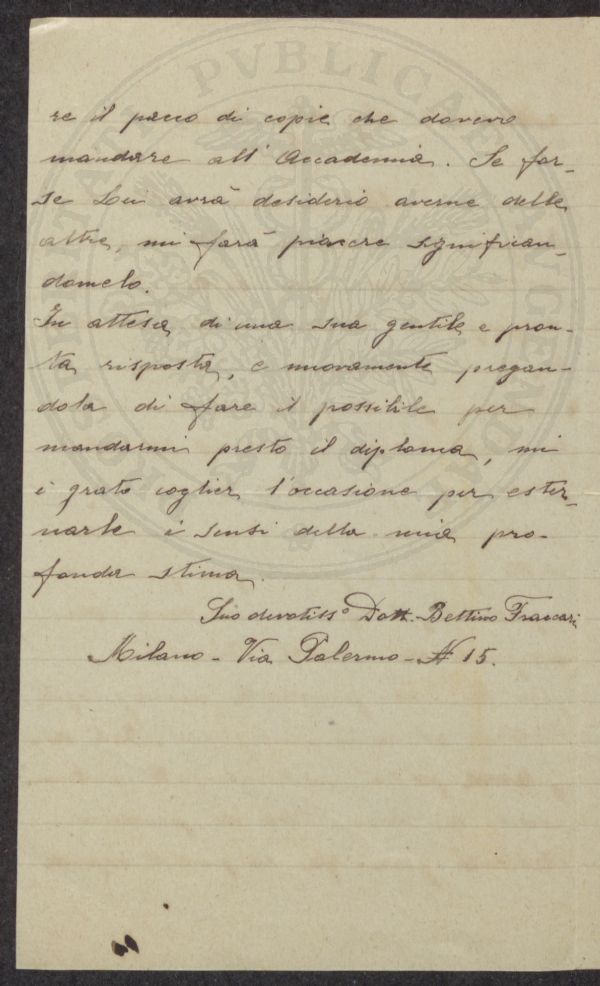 re il pacco di copie che dovevo
mandare all' Accademia. Se for-
se Lei avrà desiderio averne delle
altre, mi farà piacere significan-
domelo.
In attesa di una sua gentile e pron-
ta risposta, e nuovamente pregan-
dola di fare il possibile per
mandarmi presto il diploma, mi
è grato coglier l'occasione per ester-
narle i sensi della mia pro-
fonda stima.
Suo devotiss° Dott. Bettino
Milano - Via Palermo - N 15.
PVBLICA